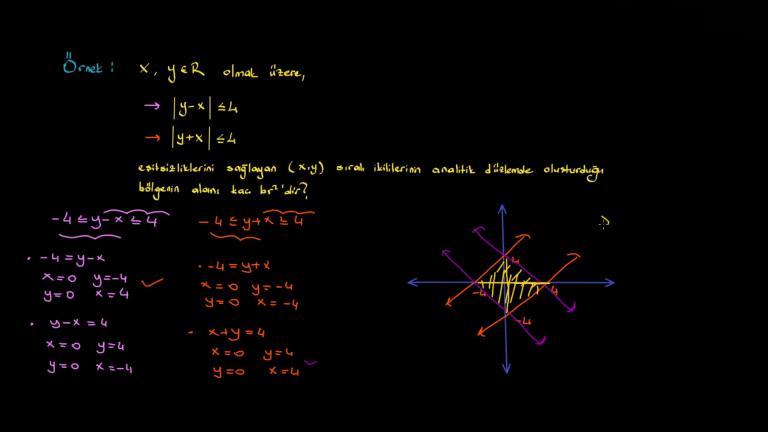 Örnek : x, y ∈ R olmak üzere,
→ |y-x| ≤ 4
→ |y+x| ≤ 4
eşitsizliklerini sağlayan (x,y) sıralı ikililerinin analitik düzlemde oluşturduğu
bölgenin alanı kaç br² 'dir?
-4 ≤ y-x ≤ 4
• -4 = y-x
x=0 y=-4
y=0 x=4
• y-x = 4
x=0 y=4
y=0 x=-4
-4 ≤ y+x ≤ 4
• -4 = y+x
x=0 y=-4
y=0 x=-4
• x+y = 4
x=0 y=4
y=0 x=4
4
-4
4
-4